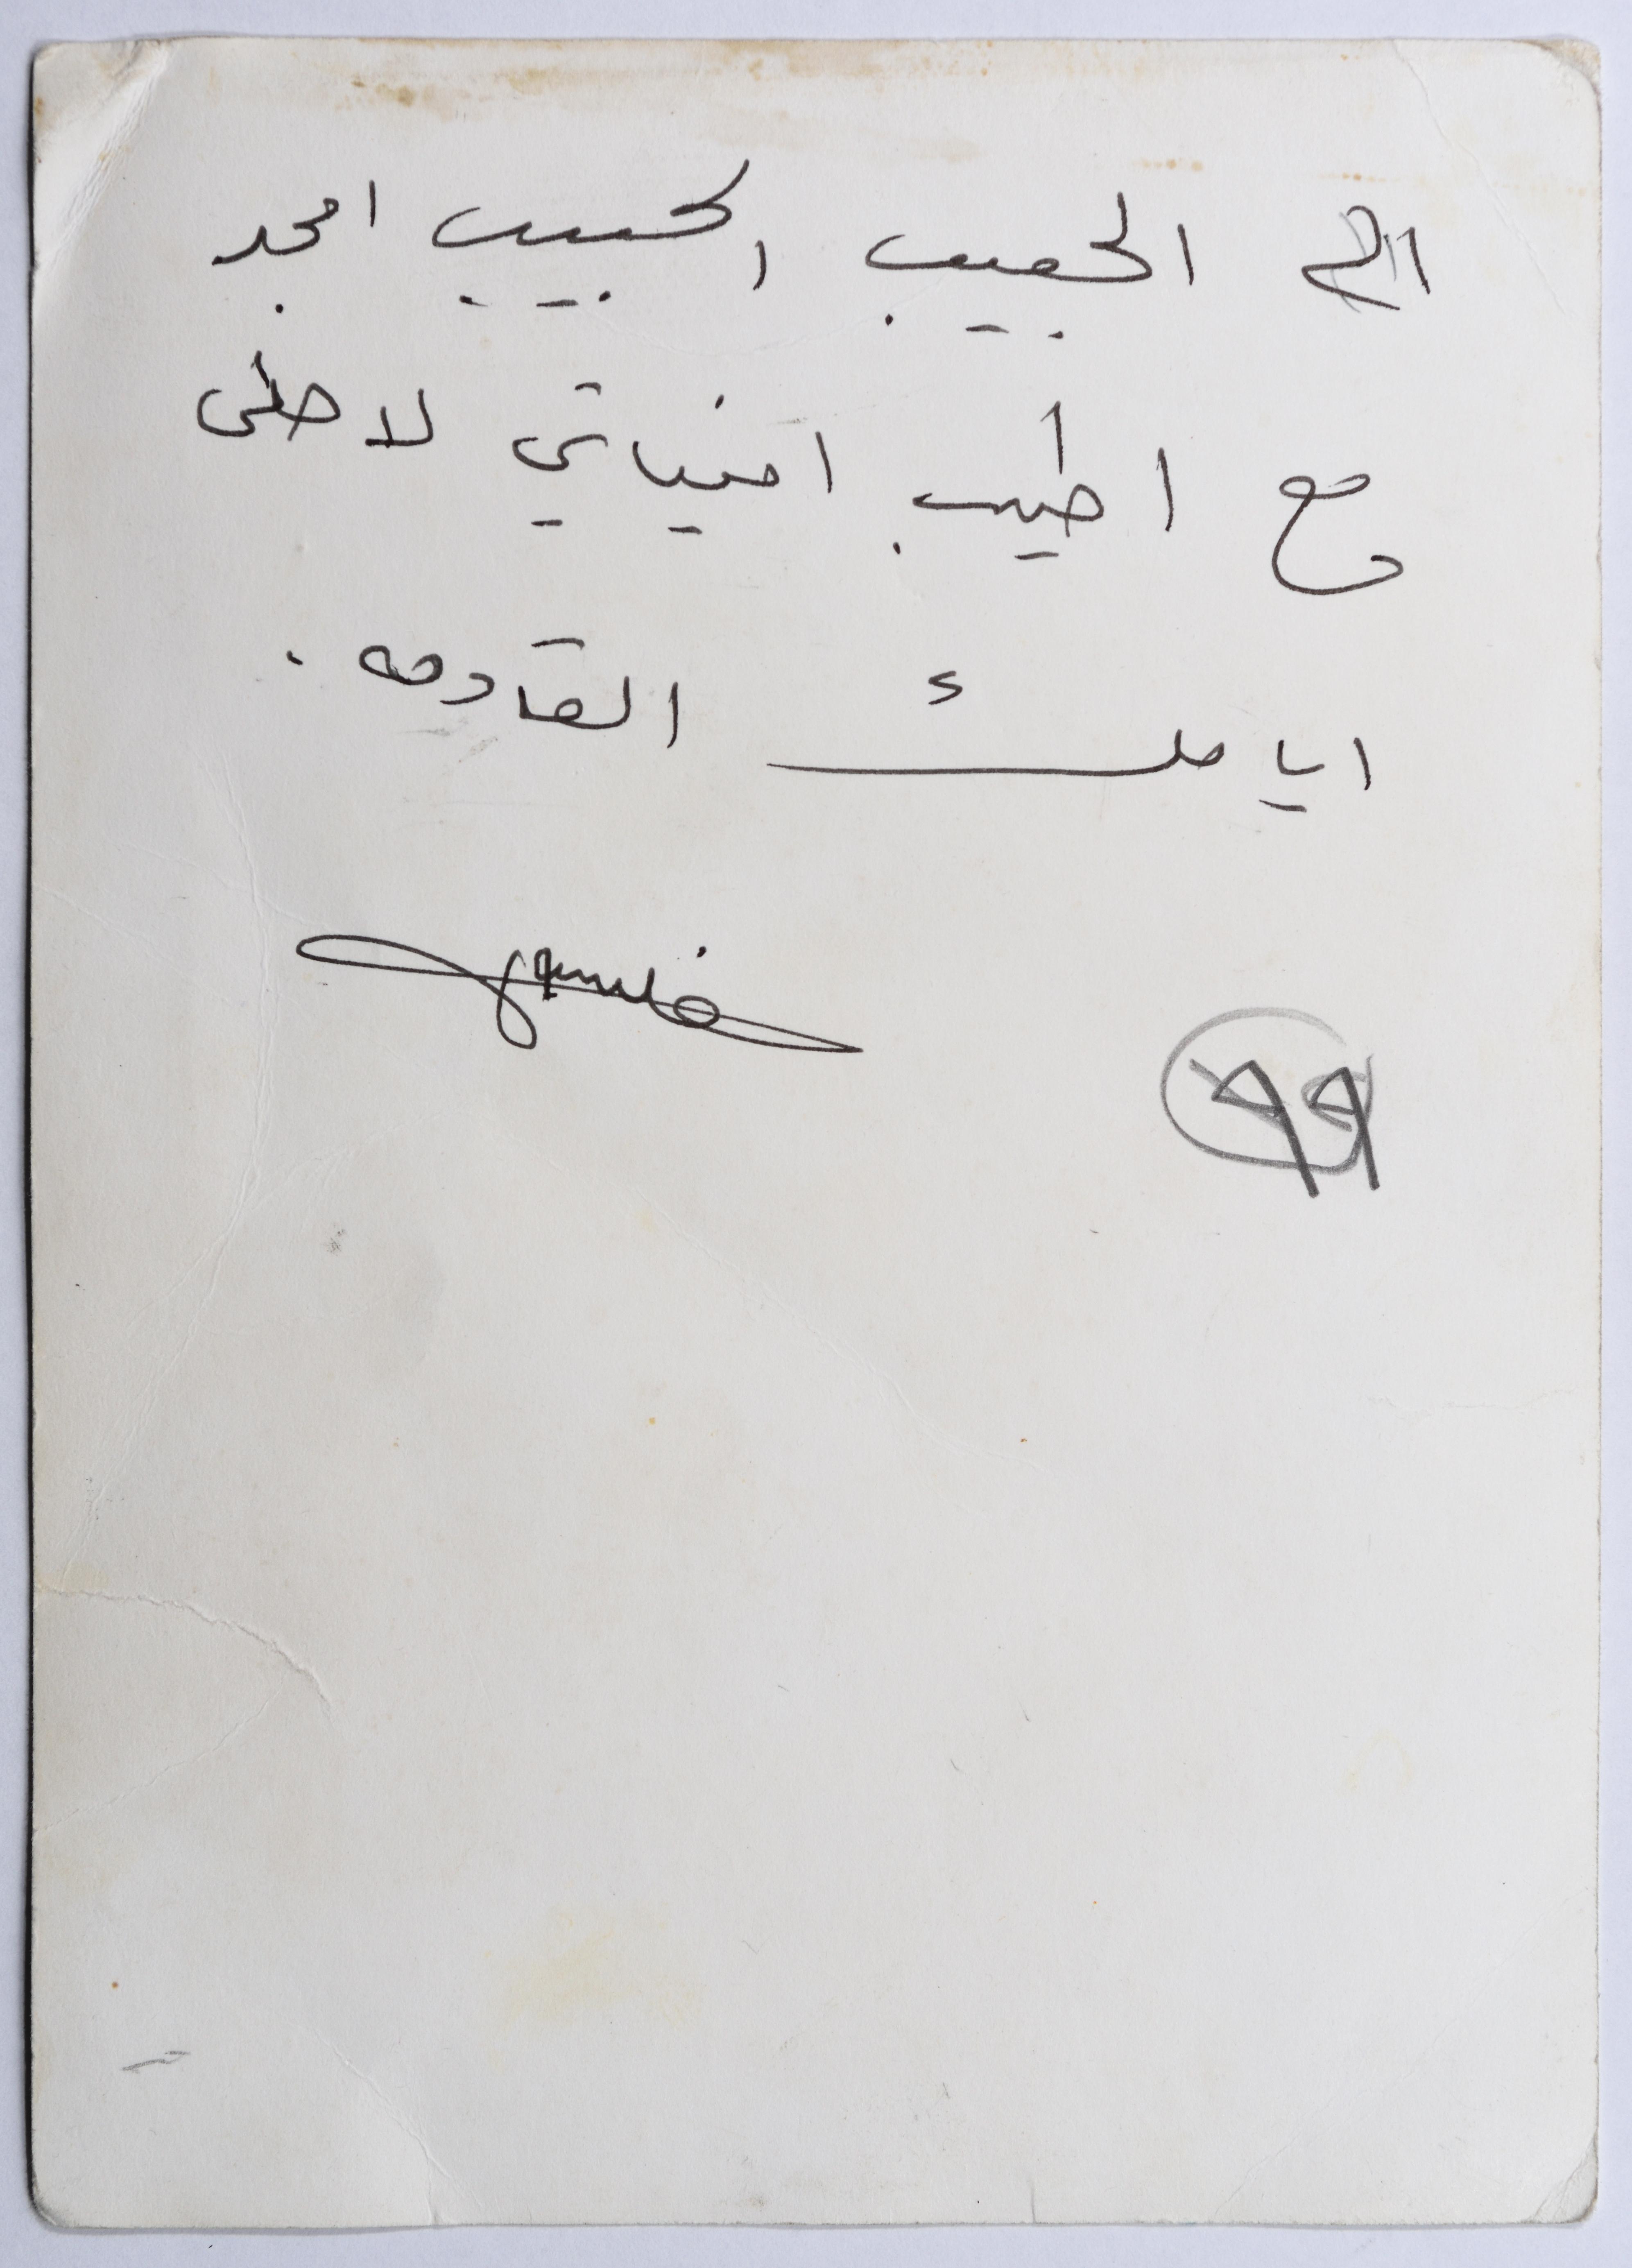 الى الحبيب الحبيب امجد
مع اطيب امنياتي لاحلى
ايامك القادمه .
٩٩